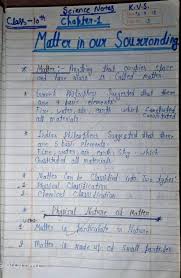 Science Notes
K.V.S.
Class-10th
Chapter-1
Matter in our Sourronding
* Matter:- Anything that occupies space
and have mass is called matter.
* Greek Philosphers Suggested that there
are 4 basic elements
Fire water air earth which Constituted
all materials
* Indian Philosphers Suggested that there
are 5 basic elements
Fire, water air earth Sky which
Constituted all materials
* Matter can be Classified into Two types:
1 Physical Classification
2 Chemical Classification
Physical Nature of Matter
1 Matter is particulate in Nature
2 Matter is made up of Small particles